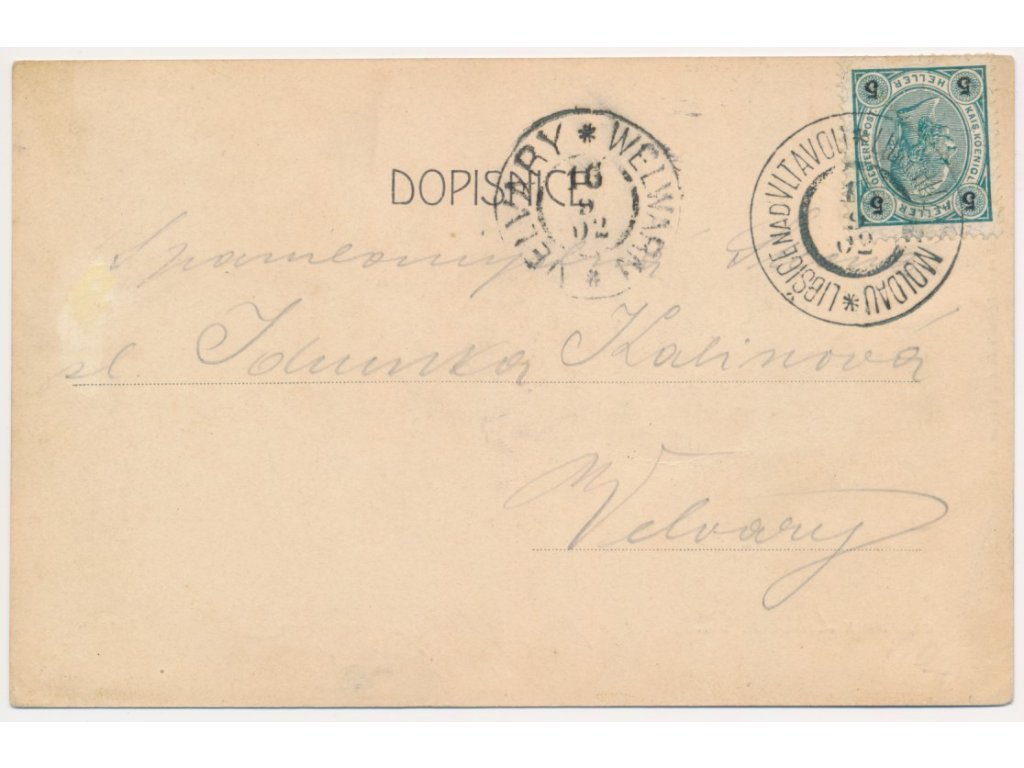 DOPISNICE
VELVARY * WELWARN *
16
9
02
LIBŠICE NAD VLTAVOU
MOLDAU *
02
5 HELLER 5
KAIS. KOENIGL.
OESTERR. POST
5 HELLER 5
sl. Idunka Kalinová
Velvary